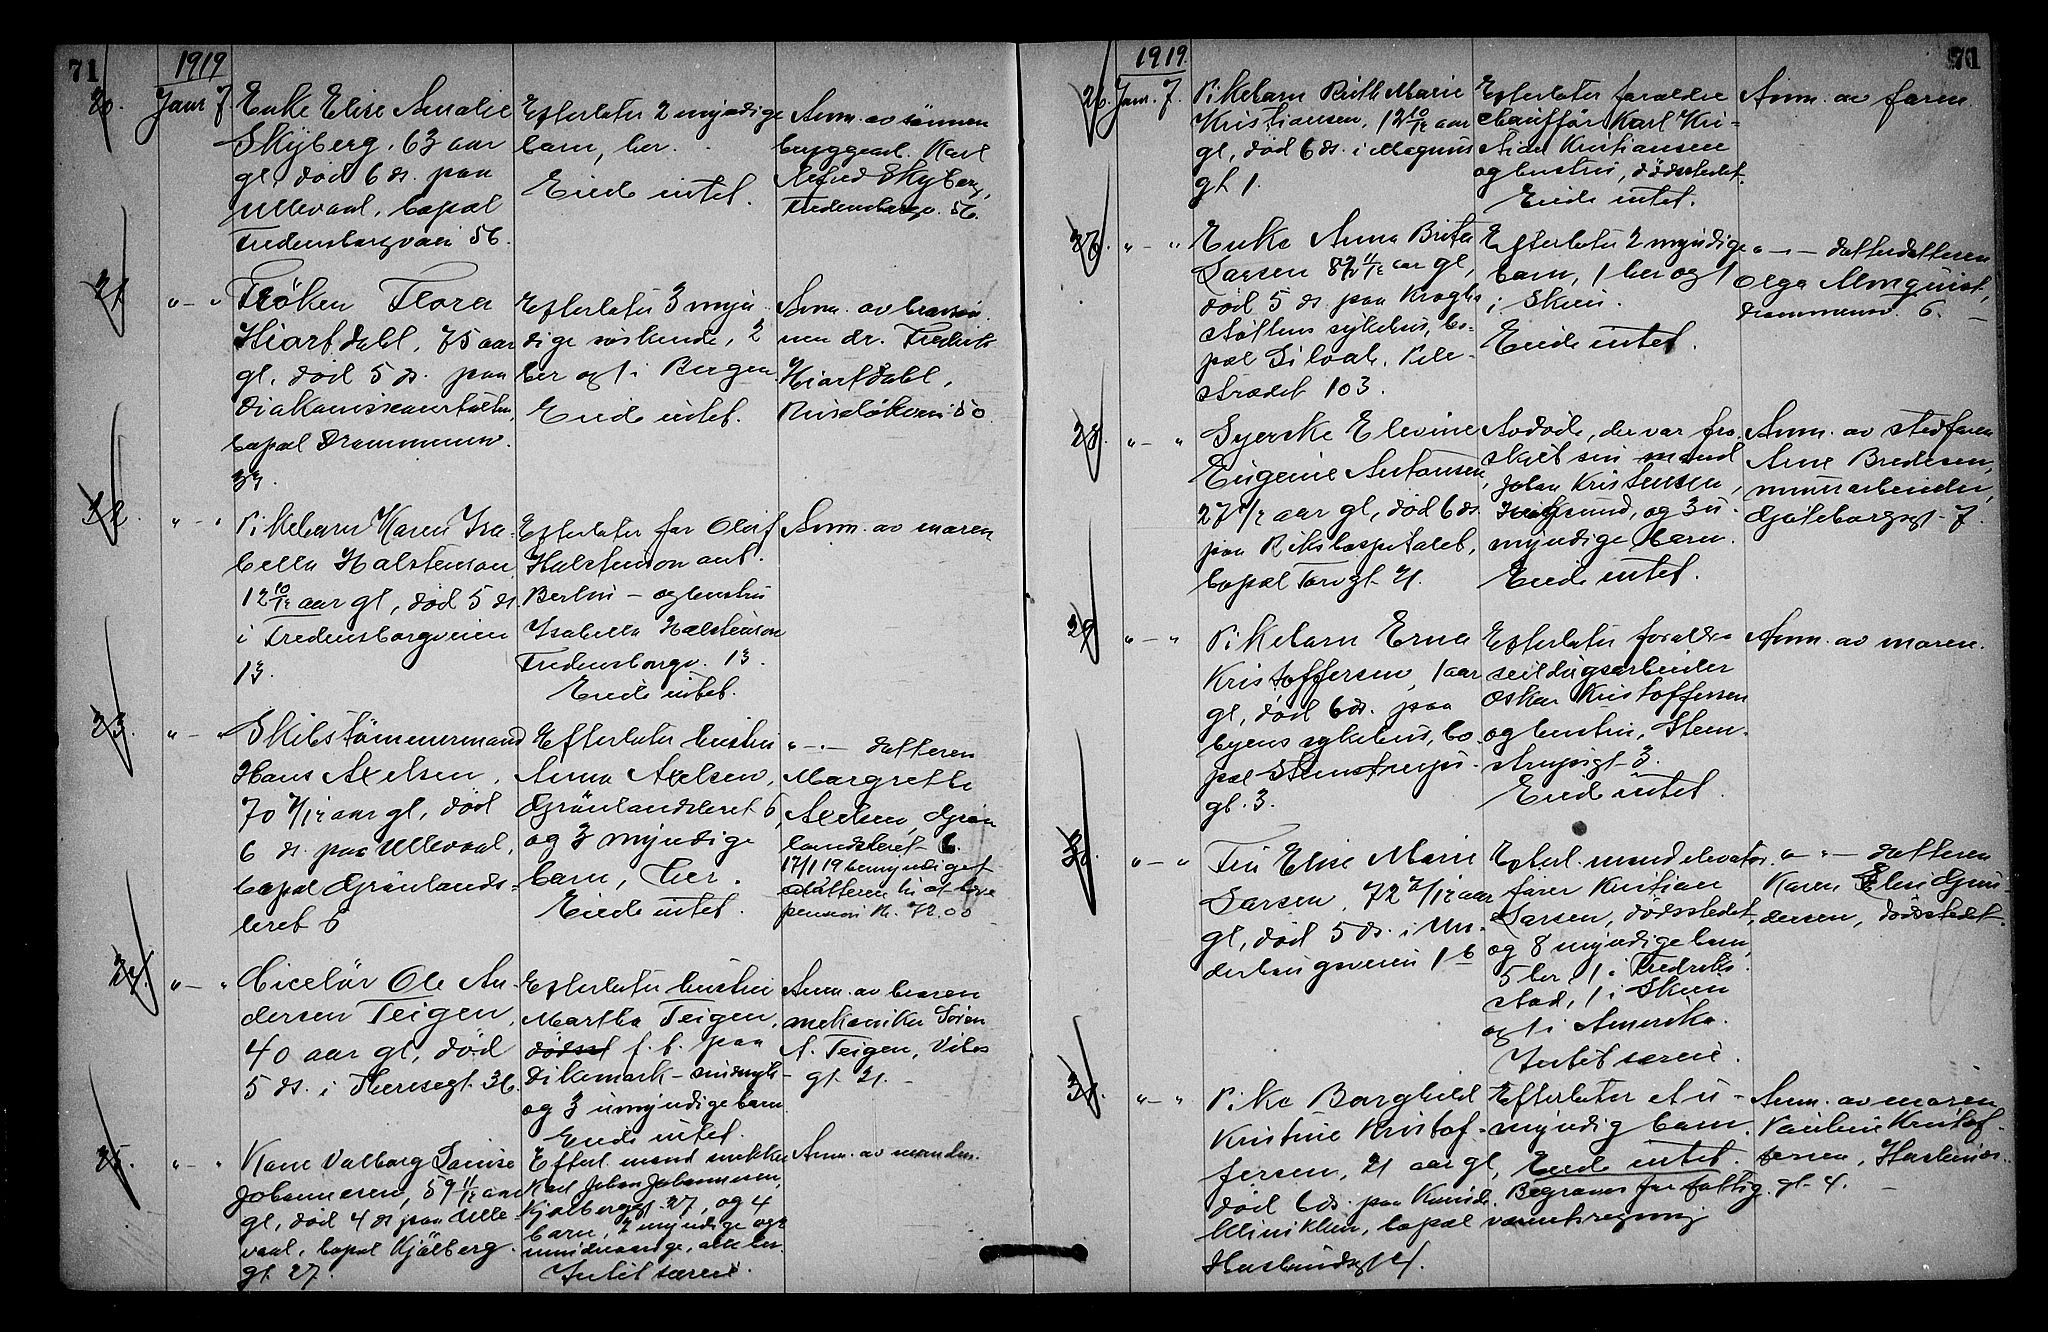 71
1919
20. Janr 7
Enke Elise Amalie
Skyberg, 63 aar
gl, död 6 ds. paa
Ullevaal, bopæl
Fredensborgveien 56.
Efterlater 2 myndige
barn, her.
Eiede intet.
Anm. av sönnen
Karl
Alfred Skyberg,
Fredensborgv. 56.
21. " — "
Fröken Flora
Hiortdahl, 75 aar
gl, död 5 ds. paa
Diakonisseanstalten,
bopæl Drammensv.
33.
Efterlater 3 myn-
dige söskende, 2
her og 1 i Bergen
Eiede intet.
Anm. av brorsön-
nen dr. Fredrik
Hiortdahl,
Ruselökvei 50
22. " — "
Pikebarn Karen Isa-
bella Halstenson
12 10/12 aar gl, död 5 ds
i Fredensborgveien
13.
Efterlater far Oluf
Halstenson ant.
Berlin — og hustru
Isabella Halstenson
Fredensborgv. 13.
Eiede intet.
Anm. av moren
23. " — "
Skibstömmermand
Hans Axelsen,
70 7/12 aar gl, död
6 ds. paa Ullevaal,
bopæl Grönlands-
leret 6
Efterlater hustru
Anna Axelsen,
Grönlandsleret 6,
og 3 myndige
barn, her.
Eiede intet.
" — datteren
Margrethe
Axelsen, Grön
landsleret 6.
17/1 19 bemyndiget
datteren til at hæve
pension kr. 72.00
24. " — "
Ciselör Ole An-
dersen Teigen,
40 aar gl, död
5 ds. i Theresegt. 36
Efterlater hustru
Martha Teigen,
dödsst f. t. paa
Dikemark — sindssyk —
og 3 umyndige barn
Eiede intet.
Anm. av broren
mekaniker Sören
A. Teigen, Vibes
gt. 21. —
25. " — "
Kone Valborg Louise
Johannesen, 59 11/12 aar
gl, död 4 ds paa Ulle-
vaal, bopæl Kjölberg-
gt. 27.
Efterl. mand snekker
Karl Johan Johannesen,
Kjölberggt. 27, og 4
barn, 2 myndige og 2
mindreaarige, alle her.
Intet særeie.
Anm. av manden.
71
1919.
26. Jan. 7.
Pikebarn Ruth Marie
Kristiansen, 12 10/12 aar
gl, död 6 ds. i Magnus
gt 1.
Efterlater forældre
chaufför Karl Kri-
stian Kristiansen
og hustru, dödsstedet.
Eiede intet.
Anm. av faren
27. " — "
Enke Anna Brita
Larsen 82 11/12 aar gl,
död 5 ds. paa Kroghs
stöttens sykehus, bo-
pæl Siloah, Pile-
strædet 103.
Efterlater 2 myndige
barn, 1 her og 1
i Skien.
Eiede intet.
" — datterdatteren
Olga Almquist,
Drammensv. 6. —
28. " — "
Syerske Elevine
Eugenie Antonsen,
27 1/2 aar gl, död 6 ds.
paa Rikshospitalet,
bopæl Torvgt 21.
Avdöde, der var fra-
skilt sin mand
Johan Kristensen,
og 3 u-
myndige barn.
Eiede intet.
Anm. av stedfaren
Arne Bredesen,
murarbeider,
Göteborggt 7.
29. " — "
Pikebarn Erna
Kristoffersen, 1 aar
gl, död 6 ds. paa
byens sykehus, bo-
pæl Stenstrups-
gt. 3.
Efterlater forældre
seildugsarbeider
Oskar Kristoffersen
og hustru, Sten-
strupsgt 3.
Eiede intet.
Anm. av moren.
30. " — "
Fru Elise Marie
Larsen, 72 7/12 aar
gl, död 5 ds. i Un-
derhaugsveien 1 b
Efterl. mand elevator-
förer Kristian
Larsen, dödsstedet,
og 8 myndige barn,
5 her, 1 i Fredrik-
stad, 1 i Skien
og 1 i Amerika.
Intet særeie.
" — datteren
Karen Elise Gun-
dersen, dödsstedet.
31. " — "
Pike Borghild
Kristine Kristof-
fersen, 21 aar gl,
död 6 ds. paa Kvinde
klinikken, bopæl
Haslumsgt 4.
Efterlater et u-
myndig barn.
Eiede intet.
Begraves for fattig-
væsenets regning
Anm. av moren
Pauline Kristof-
fersen, Haslums-
gt. 4. —